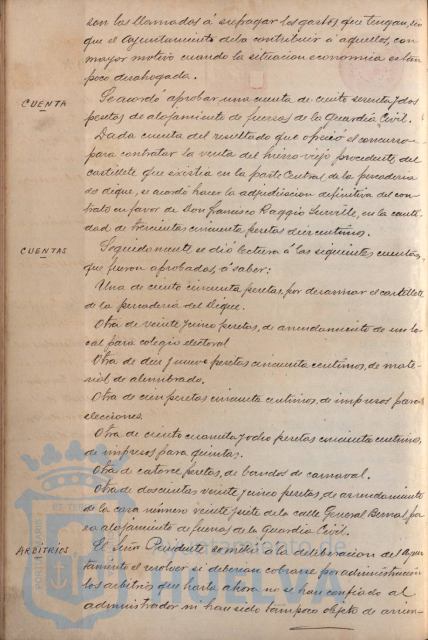 son los llamados á sufragar los gastos que tengan, sin
que el Ayuntamiento deba contribuir á aquellos, con
mayor motivo cuando la situacion economica es tan
poco desahogada.
CUENTA
Se acordó aprobar una cuenta de ciento sesenta y dos
pesetas, de alojamiento de fuerzas de la Guardia Civil.
Dada cuenta del resultado que ofreció el concurso
para contratar la venta del hierro viejo procedente del
castillete que existia en la parte Central de la pescaderia
de dique, se acordó hacer la adjudicacion definitiva del con-
trato en favor de Don Francisco Raggio, en la canti-
dad de trescientas cincuenta pesetas diez centimos.
CUENTAS
Seguidamente se dió lectura á las siguientes cuentas,
que fueron aprobadas, á saber:
Una de ciento cincuenta pesetas, por desarmar el castillete
de la pescaderia del Dique.
Otra de veinte y cinco pesetas, de arrendamiento de un lo-
cal para colegio electoral
Otra de diez y nueve pesetas cincuenta centimos, de mate-
rial de alumbrado.
Otra de cien pesetas cincuenta centimos, de impresos para
elecciones.
Otra de ciento cuarenta y ocho pesetas cincuenta centimos,
de impresos para quintas.
Otra de catorce pesetas, de bandos de carnaval.
Otra de doscientas veinte y cinco pesetas, de arrendamiento
de la casa número veinte y siete de la calle General Bernal, pa-
ra alojamiento de fuerzas de la Guardia Civil.
ARBITRIOS
El Señor Presidente sometió á la deliberacion del Ayun-
tamiento el resolver si deberian cobrarse por administracion
los arbitrios que hasta ahora no se han confiado al
administrador ni han sido tampoco objeto de arrien-